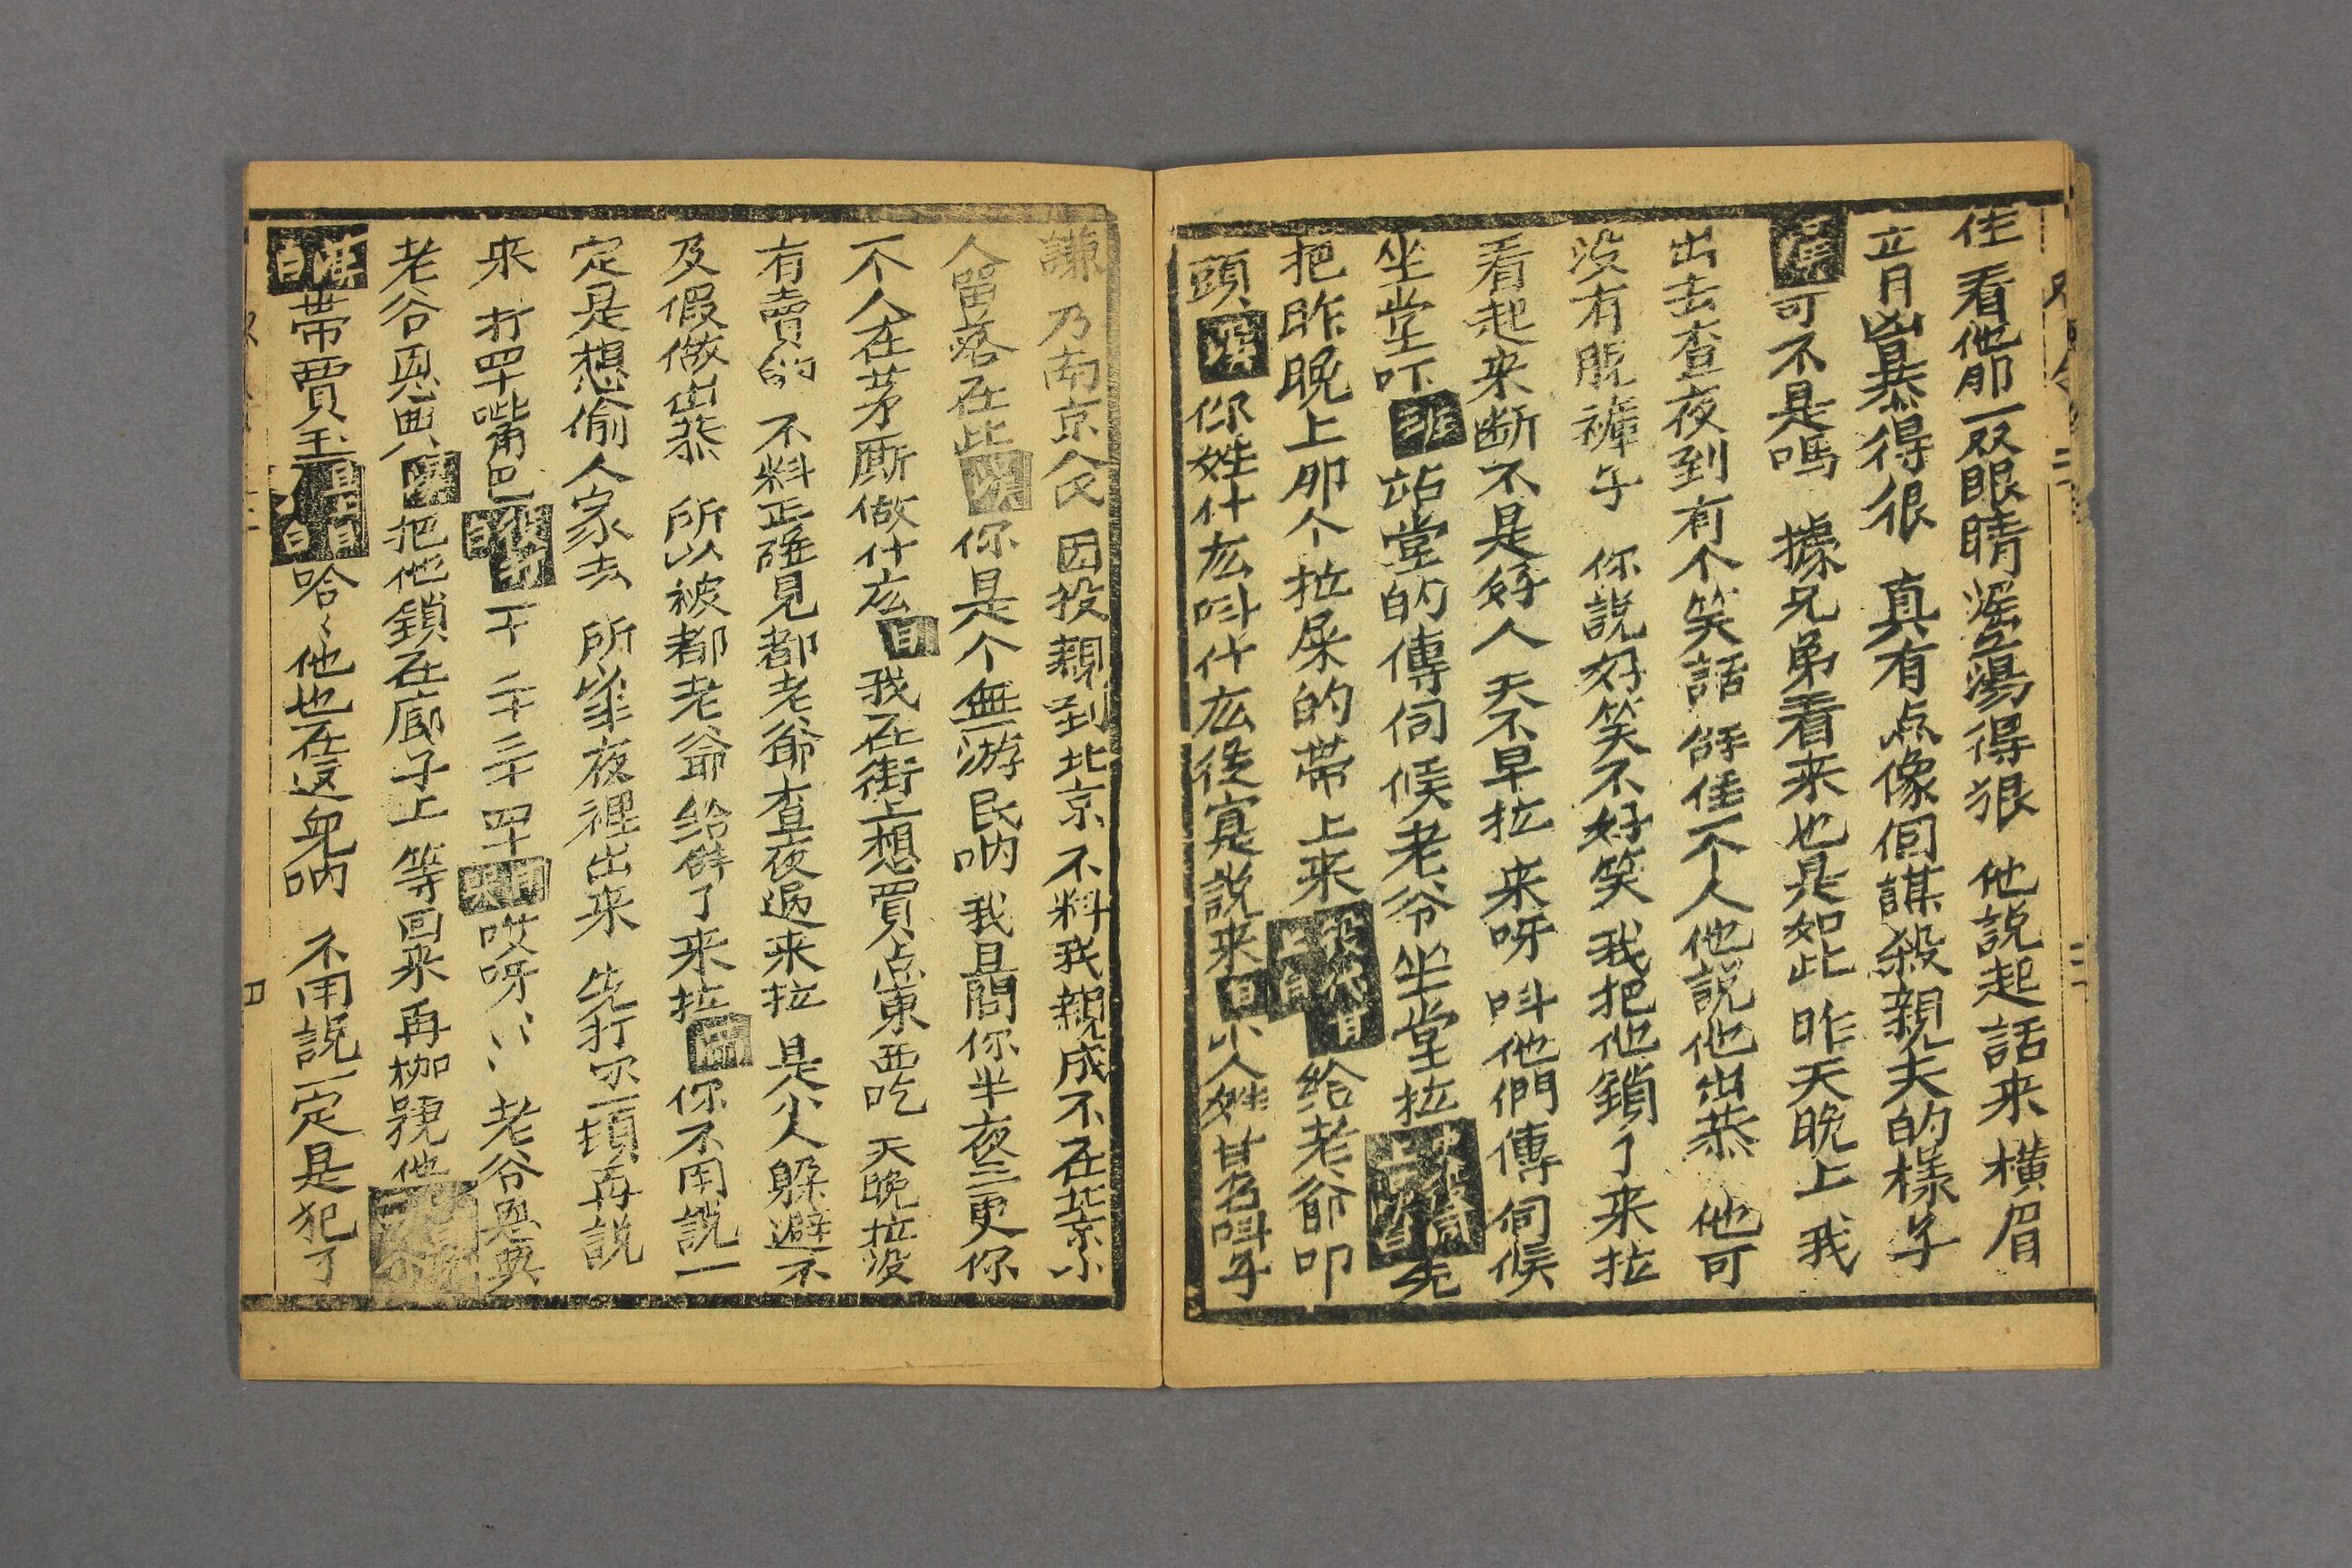 住 看他那一双眼睛滛蕩得狠 他説起話来橫眉
立月凶暴得很 真有点像個謀殺親夫的樣子
可不是嗎 據兄弟看来也是如此 昨天晚上 我
出去查夜到有个笑話 拿住一个人他説他出恭 他可
没有脱褲子 你説好笑不好笑 我把他鎖了来拉
看起来断不是好人 天不早拉 来呀 呌他們傳伺候
坐堂吓 站堂的傳伺候老爷坐堂拉 先
把昨晚上那个拉屎的带上来 給老爺叩
頭 你姓什庅呌什庅從寔説来 小人姓甘名呌子
謙 乃南京人氏 因投親到北京 不料我親戚不在北京小
人畱落在此 你是个無游民吶 我且問你半夜三更你
一个人在茅厠做什庅 我在街上想買点東西吃 天晚拉没
有賣的 不料正碰見都老爺查夜過来拉 是小人躲避不
及假做出恭 所以被都老爺給拿了来拉 你不用説一
定是想偷人家去 所以半夜裡出来 先打你一頓再説
来 打四十嘴巴 一十 二十 三十 四十 哎呀 老爷恩典
老爷恩典 把他鎖在廊子上 等回来再枷號他
带賈玉 哈哈他也在这兒吶 不用説一定是犯了